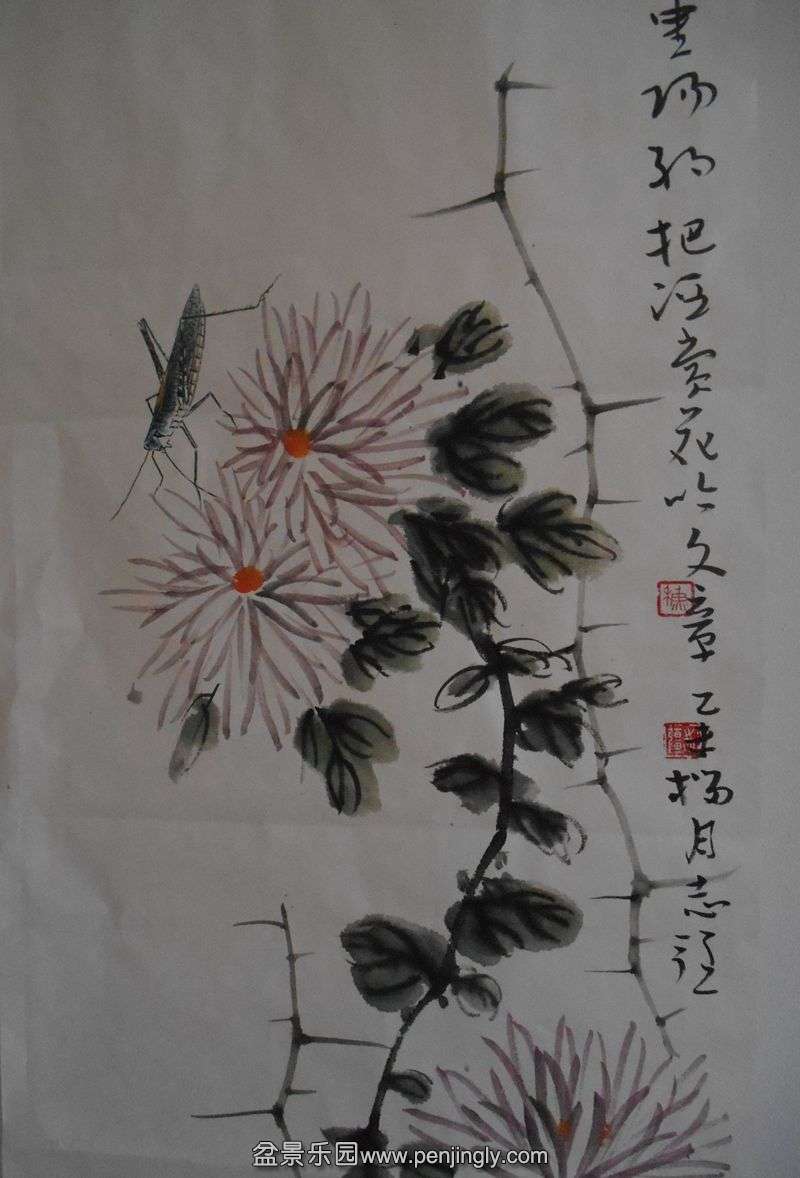 阳约把酒赏花吟文章 乙未杨月志
盆景乐园www.penjingly.com